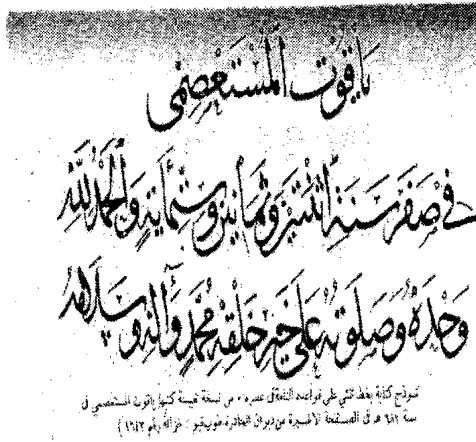 ياقوت المستعصمي
في صفر سنة اثنتين وثمانين وستمأية والحمد لله
وحده وصلوته على خير خلقه محمد وآله وسلامه
نموذج كتابة بخط ثلثي على قواعد الثلث في عصره ، من نسخة نفيسة كتبها ياقوت المستعصمي في
سنة ٦٨٢ هـ في الصفحة الأخيرة من ديوان الحادرة